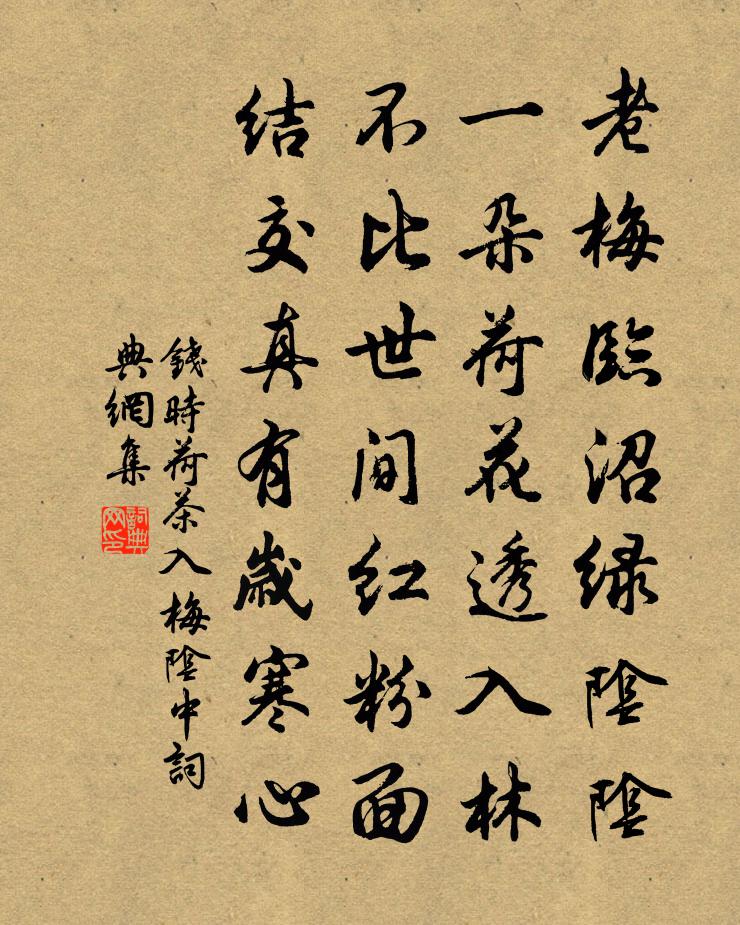 老梅臨沼绿陰陰
一朵荷花透入林
不比世间红粉面
结交真有歲寒心
錢時荷茶入梅陰中詞
典網集
詞典网印